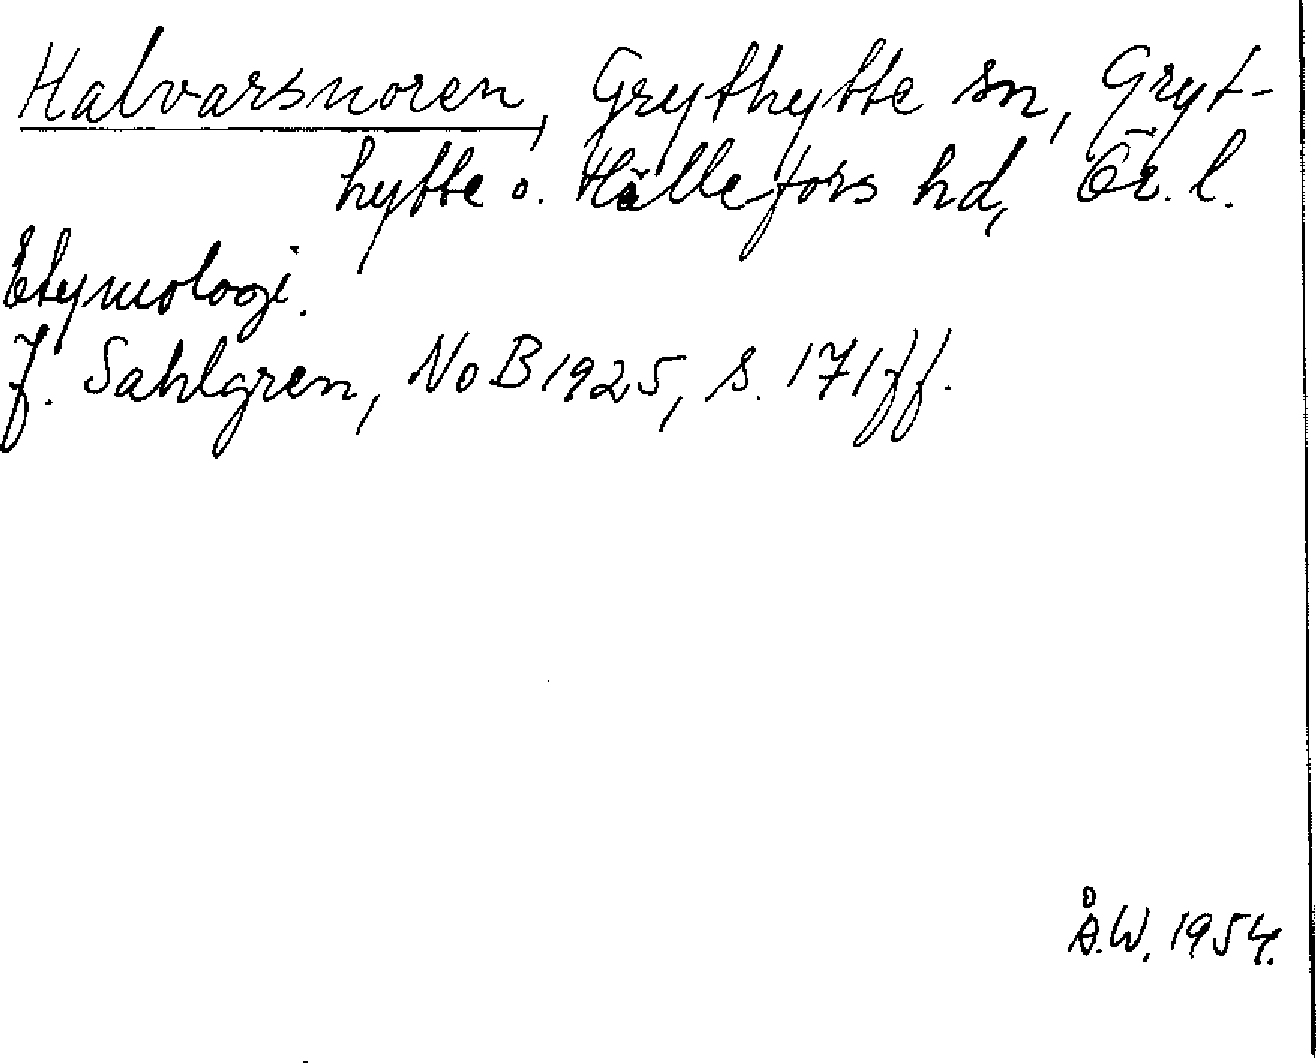 Halvarsnoren, Grythytte sn, Gryt-
hytte o. Hällefors hd, Ör. l.
Etymologi.
J. Sahlgren, NoB 1925, s. 171 ff.
Å.W. 1954.